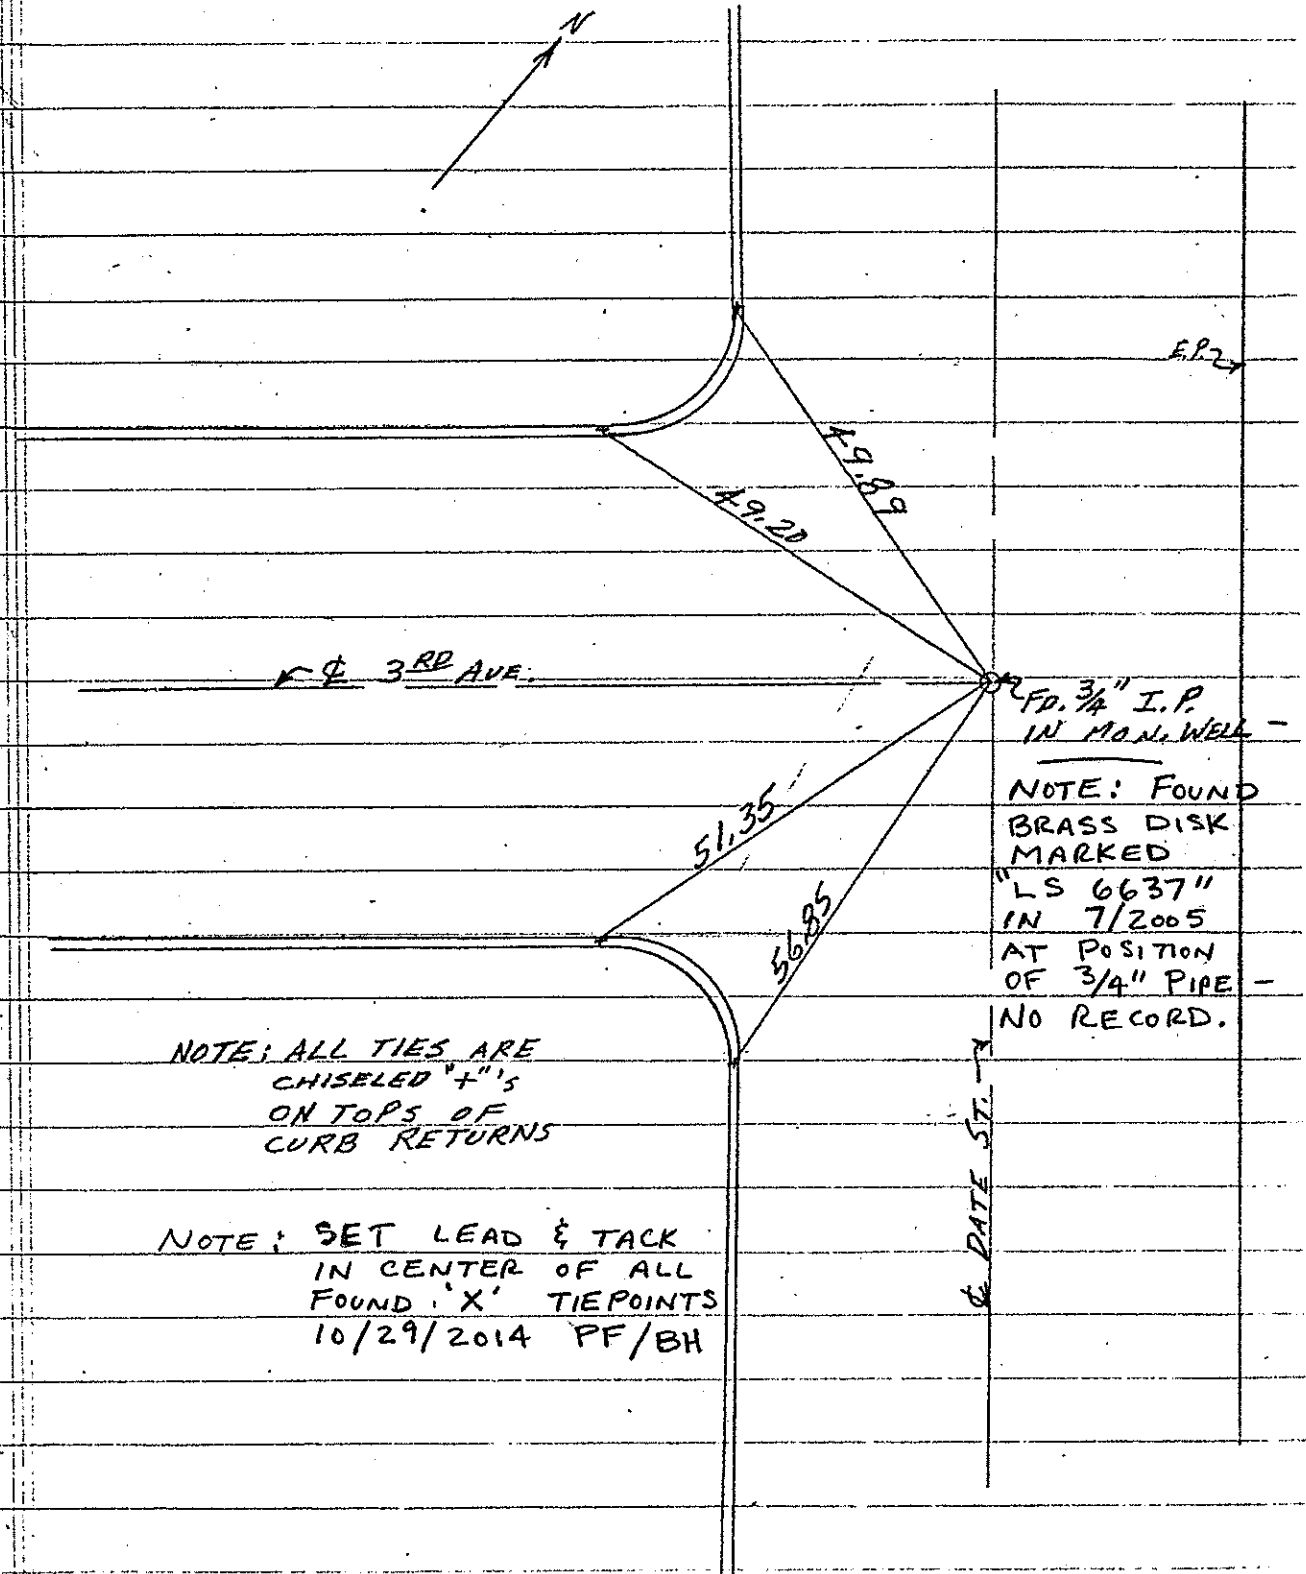 N
E.P.
49.89
49.20
℄ 3RD AVE.
FD. 3/4" I.P.
IN MON. WELL -
NOTE: FOUND
BRASS DISK
MARKED
"LS 6637"
IN 7/2005
AT POSITION
OF 3/4" PIPE -
NO RECORD.
51.35
56.85
NOTE: ALL TIES ARE
CHISELED "+"'s
ON TOPS OF
CURB RETURNS
℄ DATE ST.
NOTE: SET LEAD & TACK
IN CENTER OF ALL
FOUND 'X' TIEPOINTS
10/29/2014 PF/BH